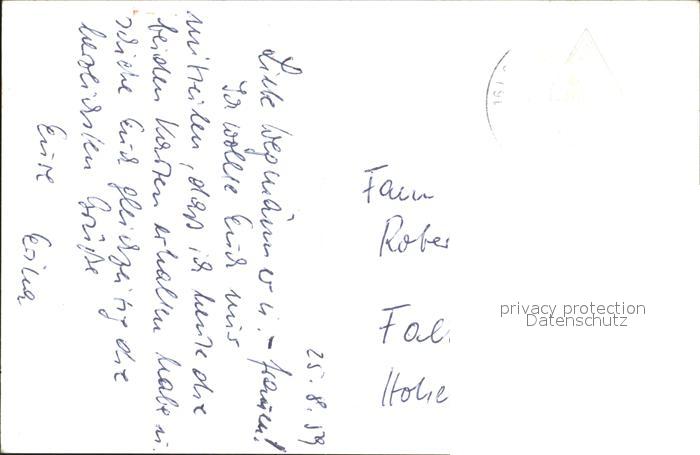 25.8.59
Liebe Wegmänner u. -frauen!
Ich wollte Euch nur
mitteilen, dass ich heute die
beiden Karten erhalten habe u.
schicke Euch gleichzeitig die
herzlichsten Grüße
Eure
Erika
Fam
Rober
Hohe
privacy protection
Datenschutz